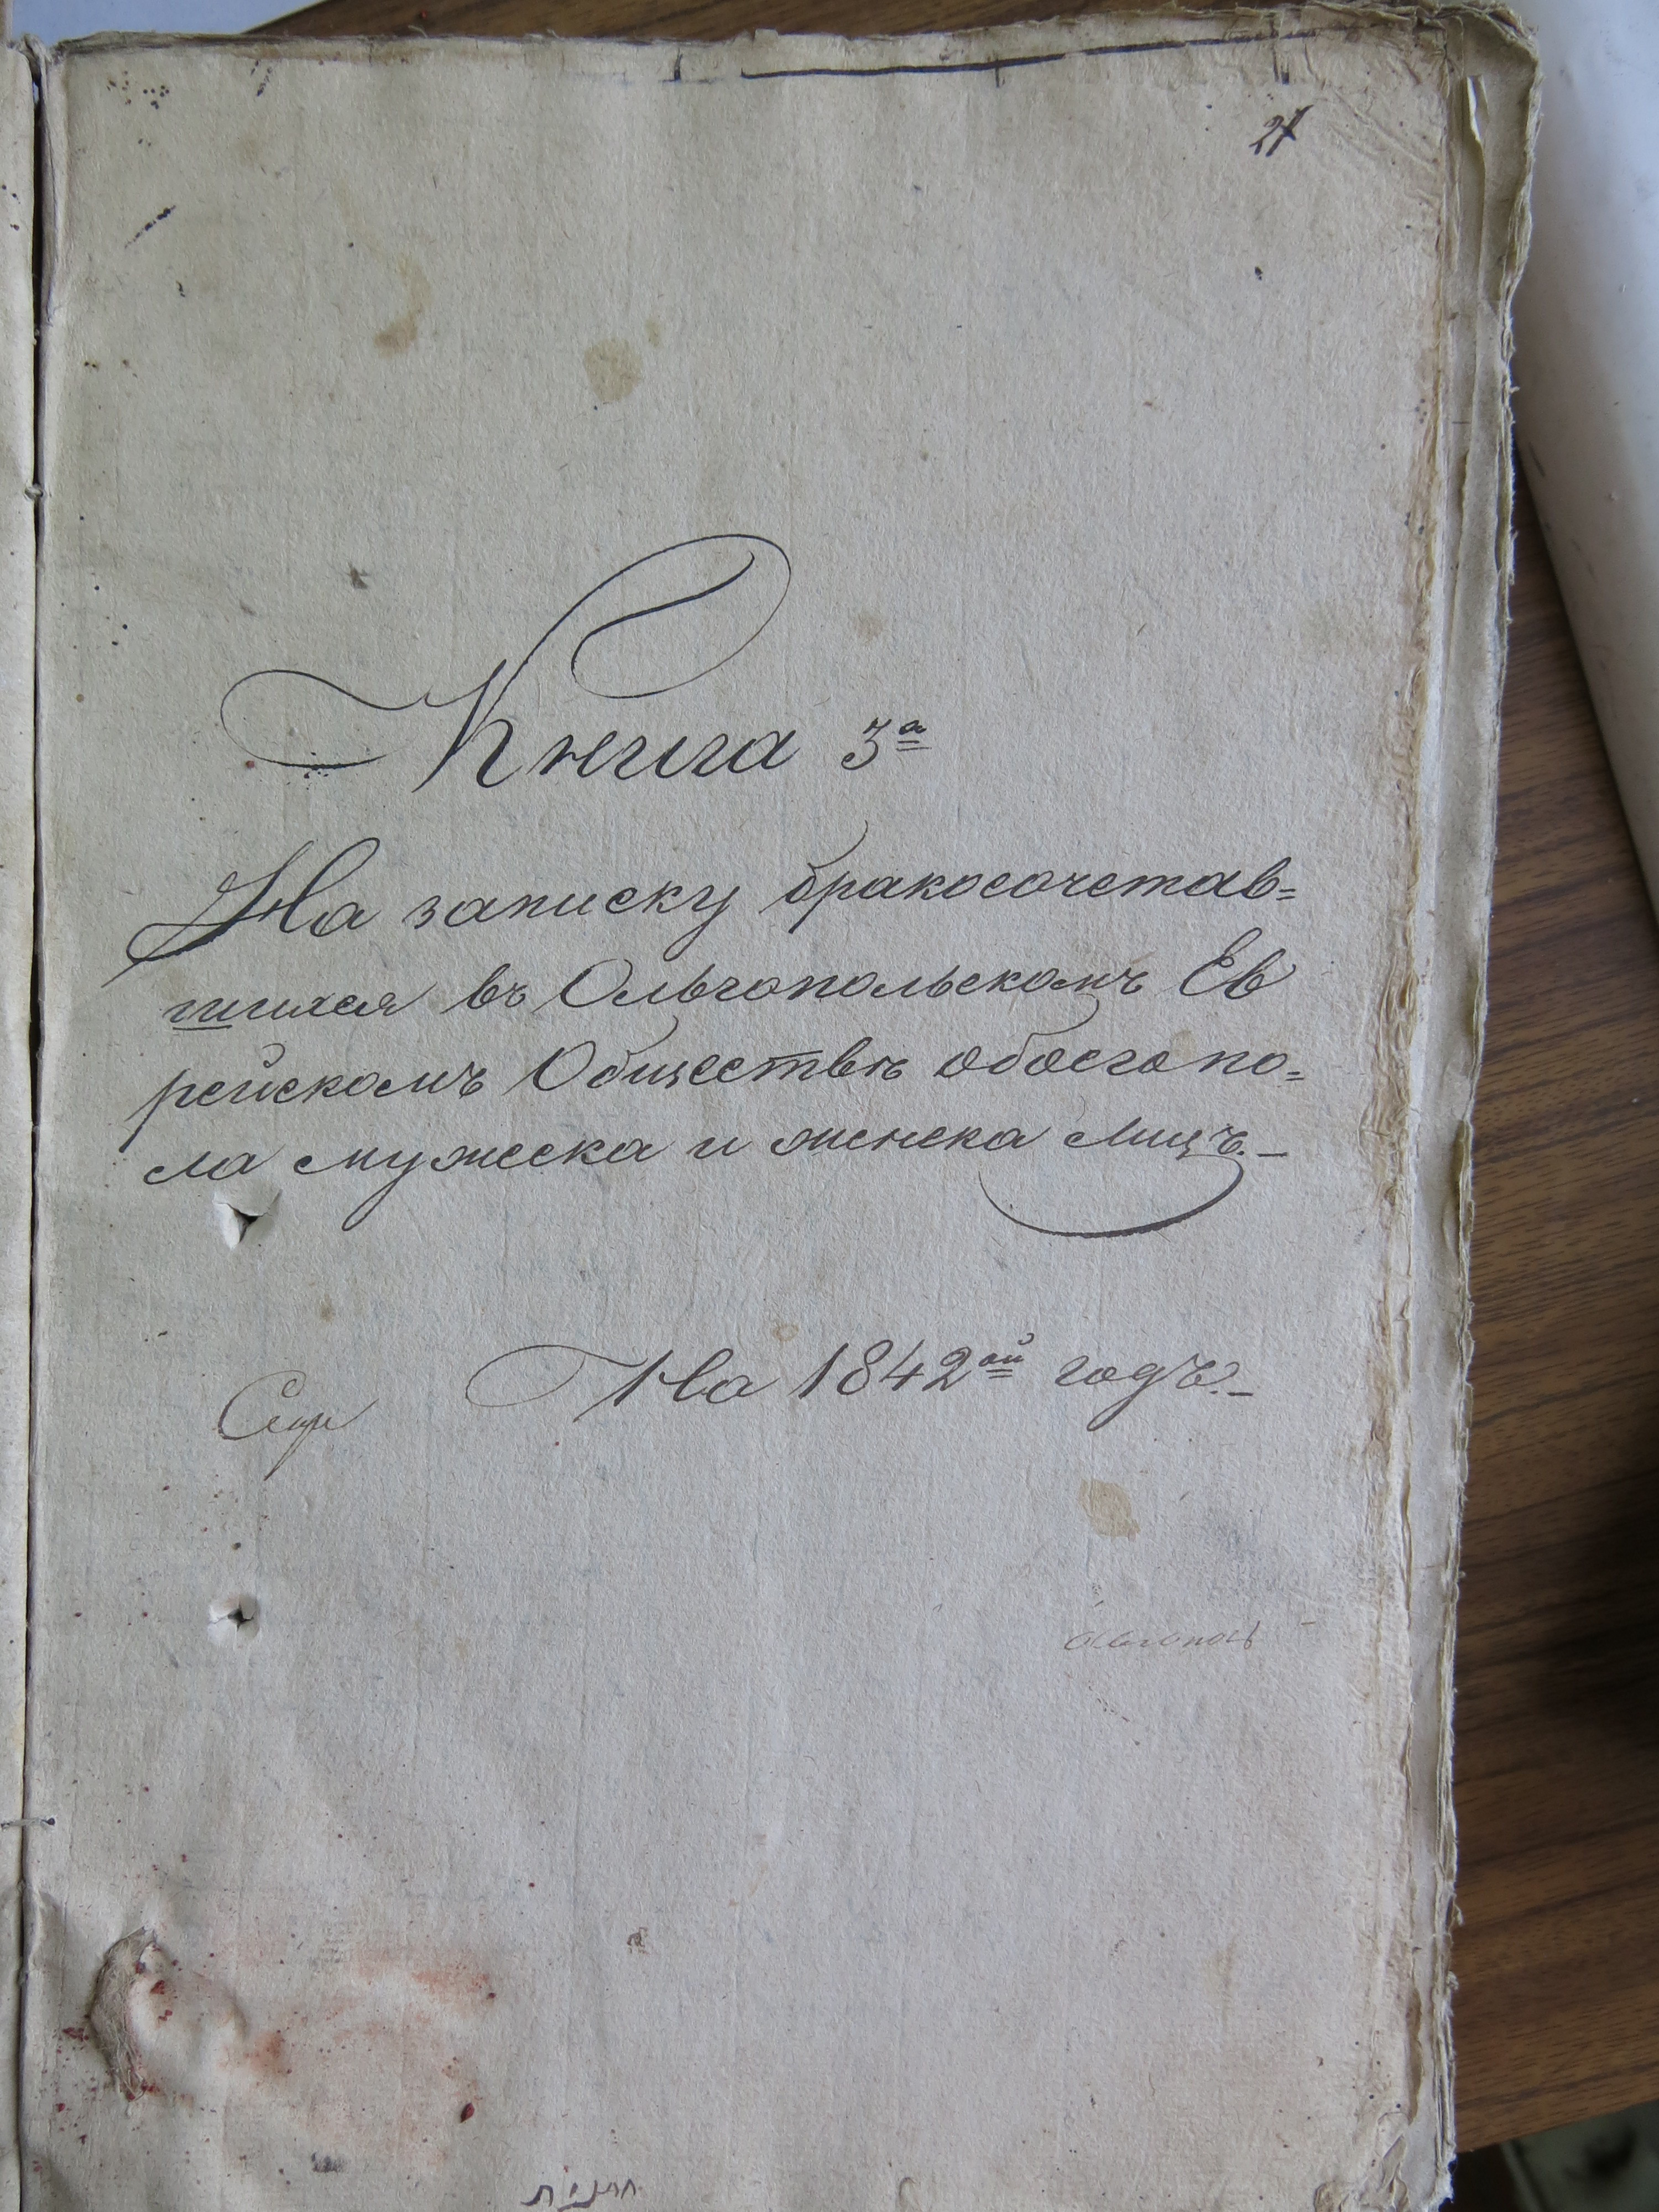 Книга 3ª
На записку бракосочетав=
шихся въ Ольгопольскомъ Ев
рейскомъ Обществѣ обоего по=
ла мужеска и женска лицъ.—
На 1842ой годъ.—